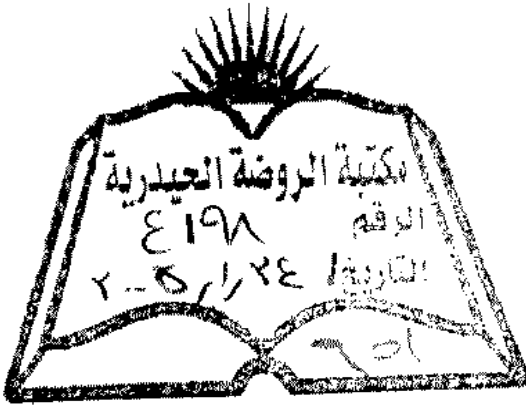 مكتبة الروضة الحيدرية
الرقم ٤١٩٨
التاريخ ٢٤/١/٢٠٠٥